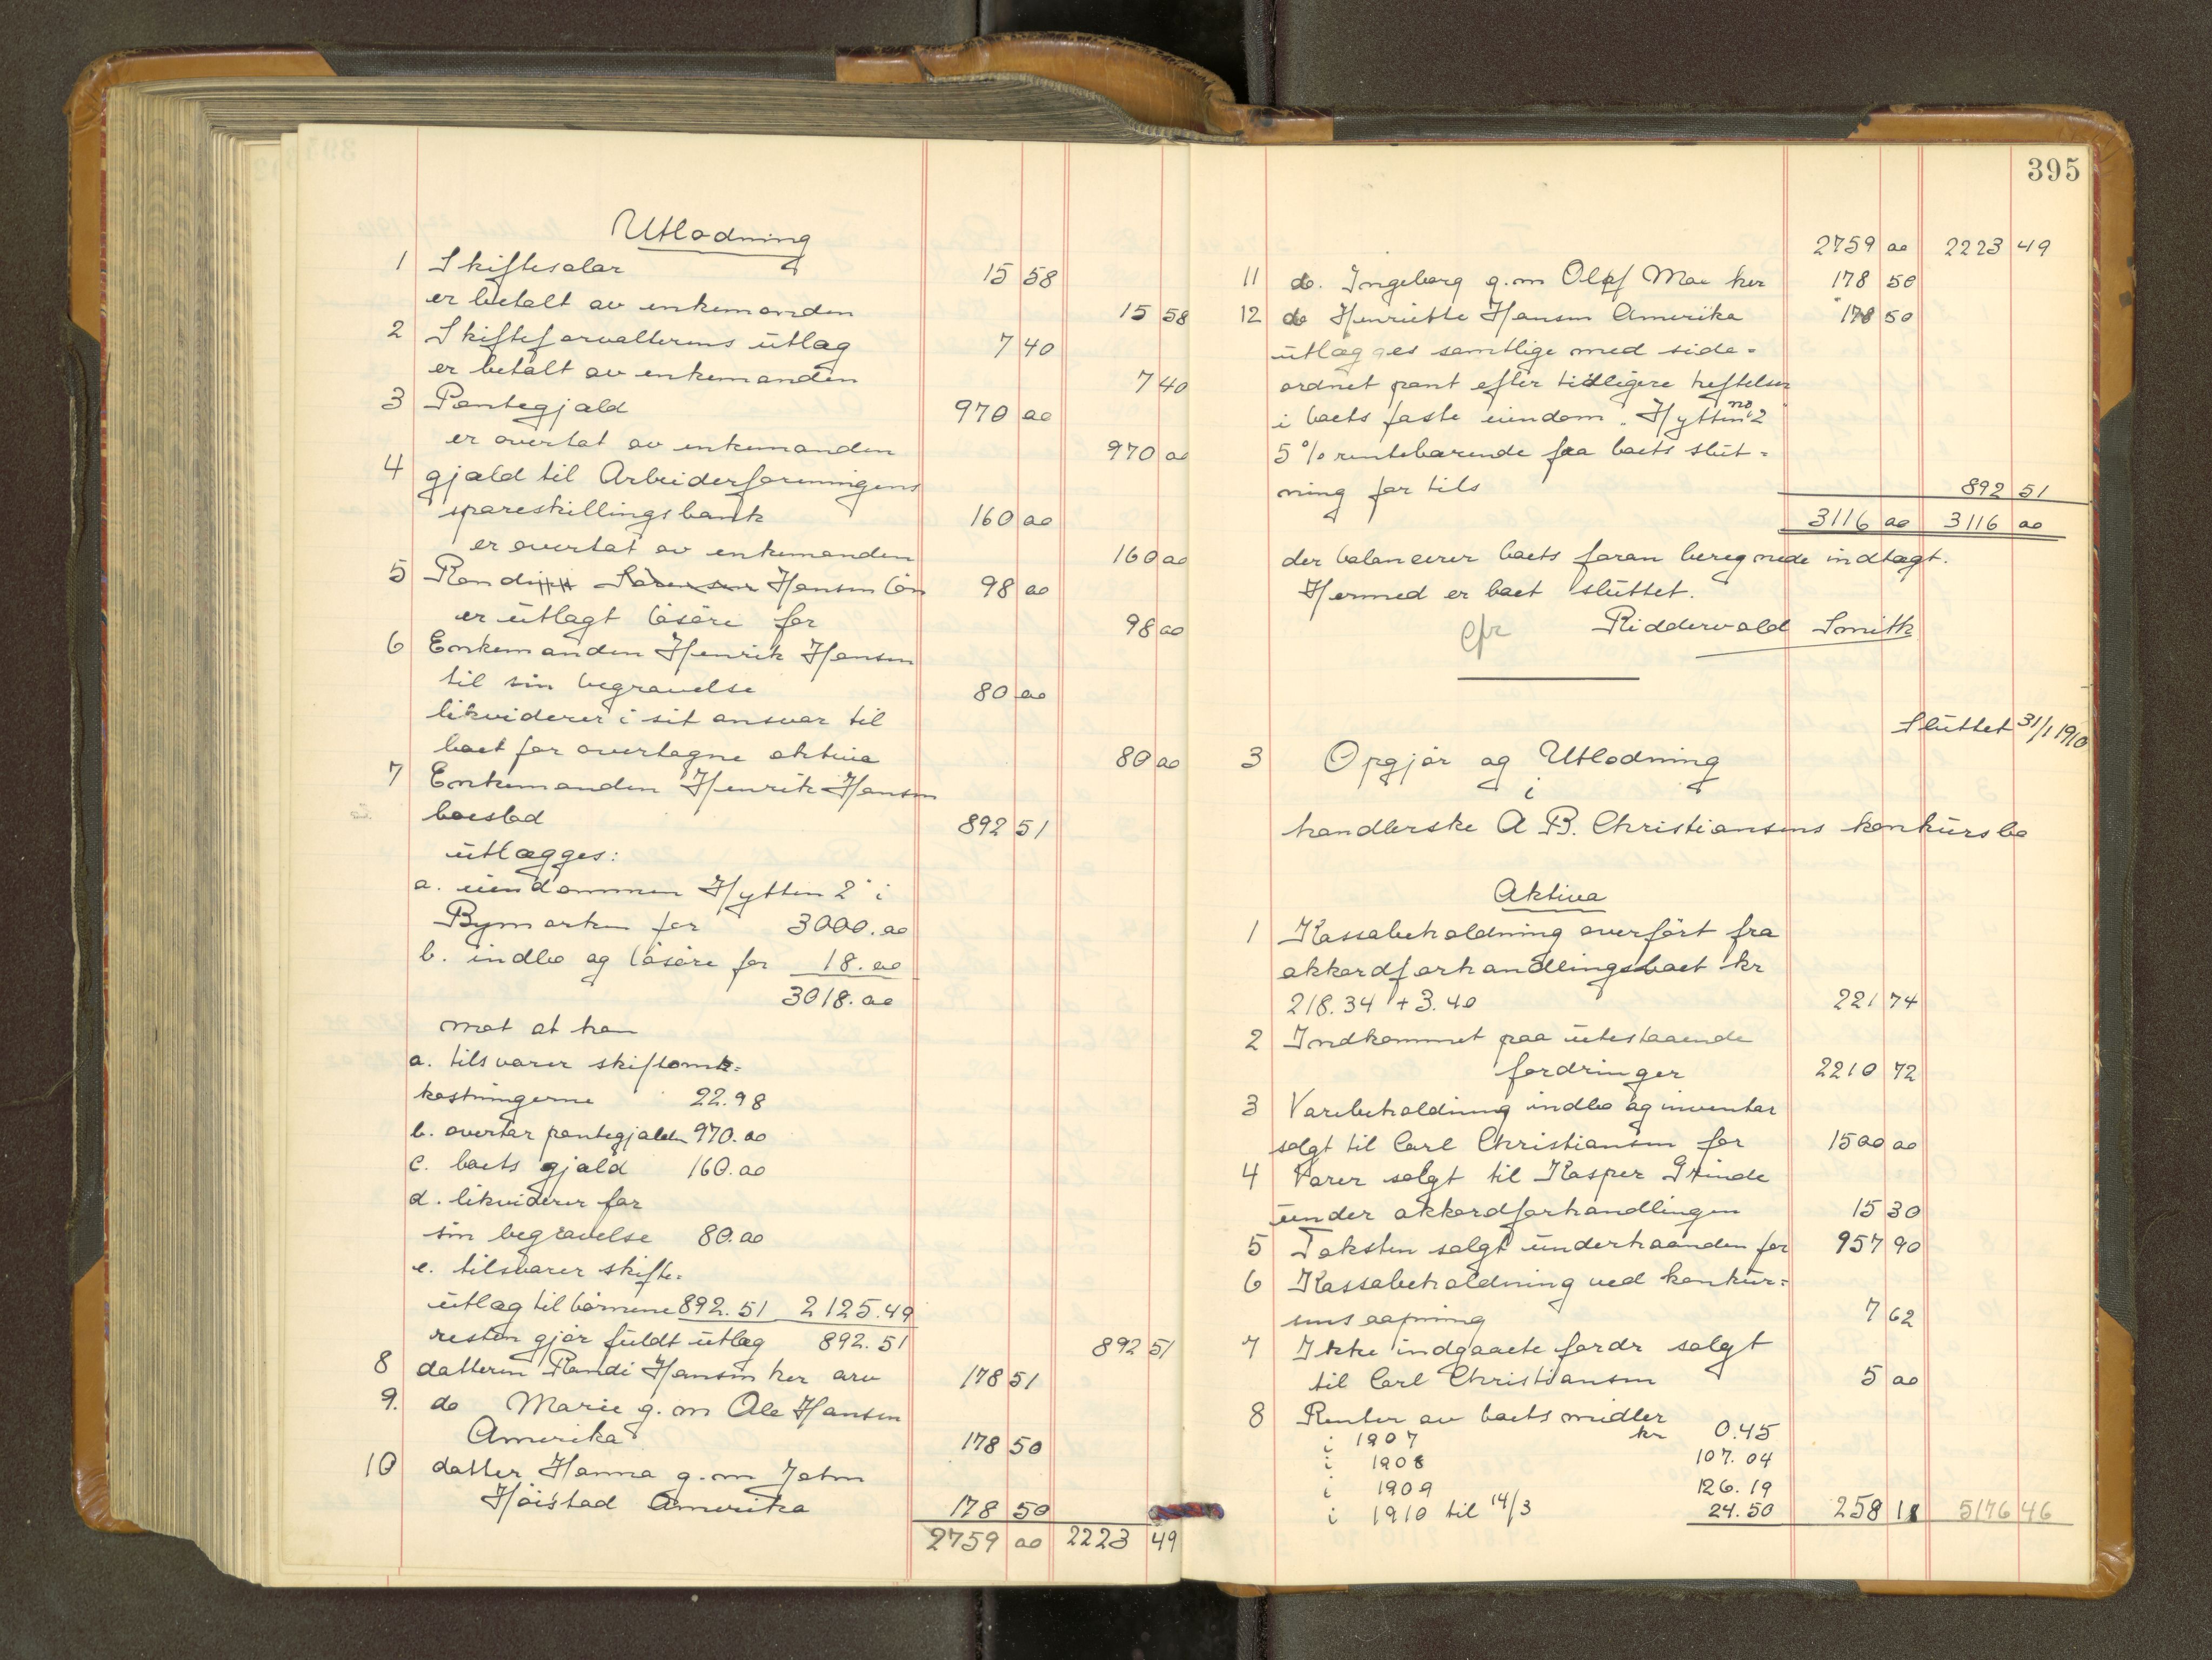 Utlodning
1 Skiftesalær 15 58
er betalt av enkemanden 15 58
2 Skifteforvalterens utlæg 7 40
er betalt av enkemanden 7 40
3 Pantegjæld 970 00
er overtat av enkemanden 970 00
4 gjæld til Arbeiderforeningens
spareskillingsbank 160 00
er overtat av enkemanden 160 00
5 Randi Hansen løn 98 00
er utlagt løsøre for 98 00
6 Enkemanden Henrik Hansen
til sin begravelse 80 00
likviderer i sit ansvar til
boet for overtagne aktiva 80 00
7 Enkemanden Henrik Hansen
boeslod 892 51
utlægges:
a. eiendommen Hytten 2" i
Bymarken for 3000.00
b. indbo og løsøre for 18.00
3018.00
mot at han
a. tilsvarer skifteomk=
kostningerne 22.98
b. overtar pantegjælden 970.00
c. boets gjæld 160.00
d. likviderer for
sin begravelse 80.00
e. tilsvarer skifte=
utlæg til børnene 892.51 2125.49
resten gjør fuldt utlæg 892.51 892 51
8 datteren Randi Hansen her arv 178 51
9. do Marie g. m Ole Hansen
Amerika 178 50
10 datter Hanna g. m John
Høistad Amerika 178 50
2759 00 2223 49
395
2759 00 2223 49
11 do. Ingeborg g. m Olaf Moe her 178 50
12 do Henriette Hansen Amerika 178 50
utlægges samtlige med side=
ordnet pant efter tidligere heftelser
i boets faste eiendom "Hytten no 2"
5 % rentebærende fra boets slut=
ning for tils 892 51
3116 00 3116 00
der balancerer boets foran beregnede indtægt.
Hermed er boet sluttet.
Cfr Riddervold Smith
Sluttet 31/1 1910
3 Opgjør og Utlodning
i
handlerske A B. Christiansens konkursbo
Aktiva
1 Kassabeholdning overført fra
akkordforhandlingsboet kr
218.34 + 3.40 221 74
2 Indkommet paa utestaaende
fordringer 2210 72
3 Varebeholdning indbo og inventar
solgt til Carl Christiansen for 1500 00
4 Varer solgt til Kasper Grinde
under akkordforhandlingen 15 30
5 Taksten solgt underhaanden for 957 90
6 Kassabeholdning ved konkur=
sens aapning 7 62
7 Ikke indgaaete fordr solgt
til Carl Christiansen 5 00
8 Renter av boets midler
i 1907 kr 0.45
i 1908 107.04
i 1909 126.19
i 1910 til 14/3 24.50 258 18 5176 46